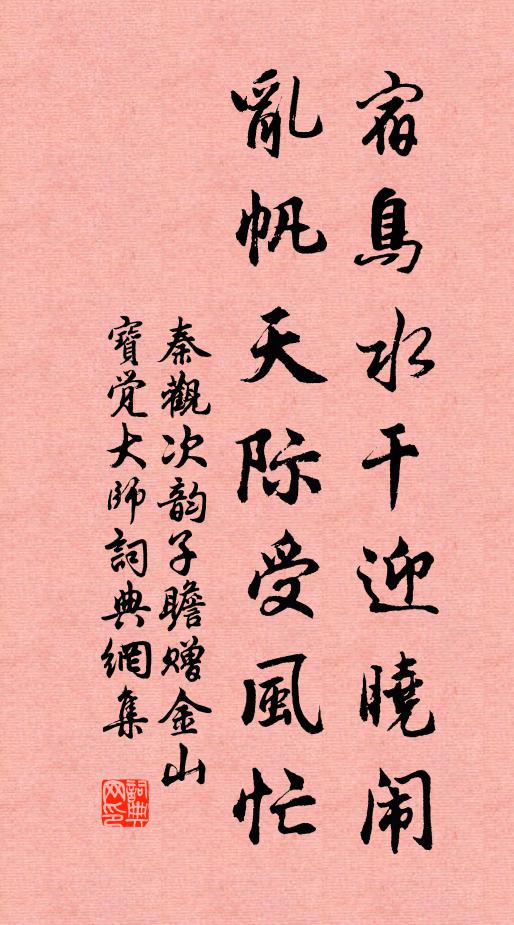 宿鳥水干迎曉闹
亂帆天际受風忙
秦觀次韵子瞻赠金山
寶觉大師詞典網集
詞典网印